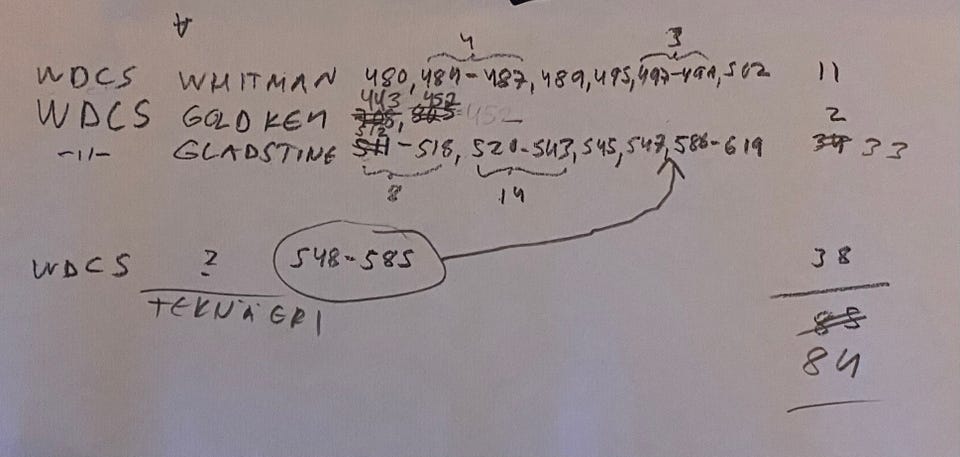 4 3
WDCS WHITMAN 480, 484-487, 489, 495, 497-499, 502 11
443 452
WDCS GOLD KEY 452 2
512
-11- GLADSTINE 511-518, 520-543, 545, 547, 586-619 34 33
8 14
WDCS ? 548-585 38
TEKNÄERI
85
84